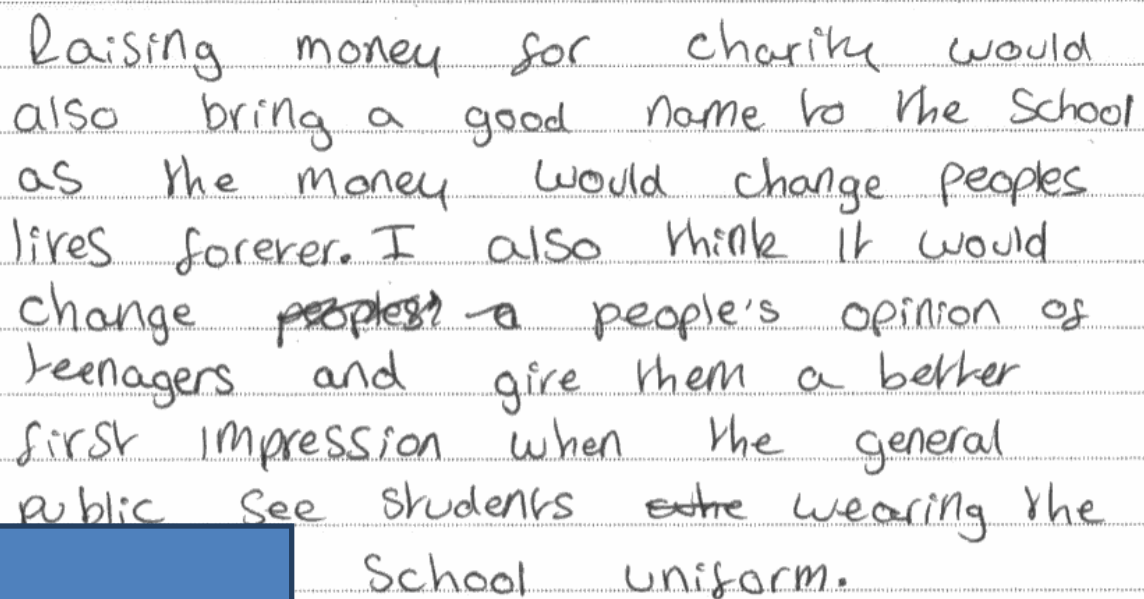 Raising money for charity would
also bring a good name to the School
as the money would change peoples
lives forever. I also think it would
change people's opinion of
teenagers and give them a better
first impression when the general
public see students wearing the
School uniform.